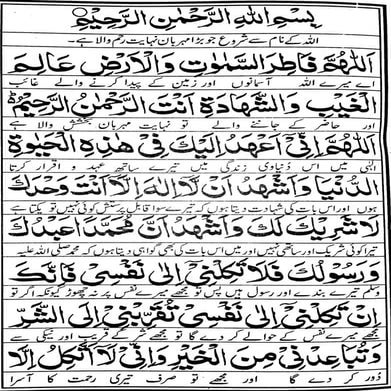 بِسْمِ اللهِ الرَّحْمٰنِ الرَّحِيْمِ
اللہ کے نام سے شروع جو بڑا مہربان نہایت رحم والا ہے۔
اَللّٰهُمَّ فَاطِرَ السَّمٰوٰتِ وَالْاَرْضِ عَالِمَ
اے میرے اللہ آسمانوں اور زمین کے پیدا کرنے والے غائب
الْغَيْبِ وَالشَّهَادَةِ اَنْتَ الرَّحْمٰنُ الرَّحِيْمُ
اور حاضر کے جاننے والے تو نہایت مہربان بخشش والا ہے
اَللّٰهُمَّ اِنِّىْ اَعْهَدُ اِلَيْكَ فِىْ هٰذِهِ الْحَيٰوةِ
الٰہی میں اس دنیاوی زندگی میں تیرے ساتھ عہد و اقرار کرتا
الدُّنْيَا وَاَشْهَدُ اَنْ لَّا اِلٰهَ اِلَّا اَنْتَ وَحْدَكَ
ہوں اور اس بات کی شہادت دیتا ہوں کہ تیرے سوا قابل پرستش کوئی نہیں تو یکتا ہے
لَا شَرِيْكَ لَكَ وَاَشْهَدُ اَنَّ مُحَمَّدًا عَبْدُكَ
تیرا کوئی شریک اور ساتھی نہیں اور میں اس بات کی بھی گواہی دیتا ہوں کہ محمد صلی اللہ علیہ
وَرَسُوْلُكَ فَلَا تَكِلْنِىْ اِلٰى نَفْسِىْ فَاِنَّكَ
وسلم تیرے بندے اور رسول ہیں پس تو مجھے میرے نفس پر نہ چھوڑ کیونکہ اگر تو
اِنْ تَكِلْنِىْ اِلٰى نَفْسِىْ تُقَرِّبْنِىْ اِلَى الشَّرِّ
مجھے میرے نفس کے حوالے کر دے گا تو مجھے شر کے قریب اور نیکی سے
وَتُبَاعِدْنِىْ مِنَ الْخَيْرِ وَاِنِّىْ لَا اَتَّكِلُ اِلَّا
دور کر دے گا اور مجھے تو صرف تیری رحمت کا آسرا